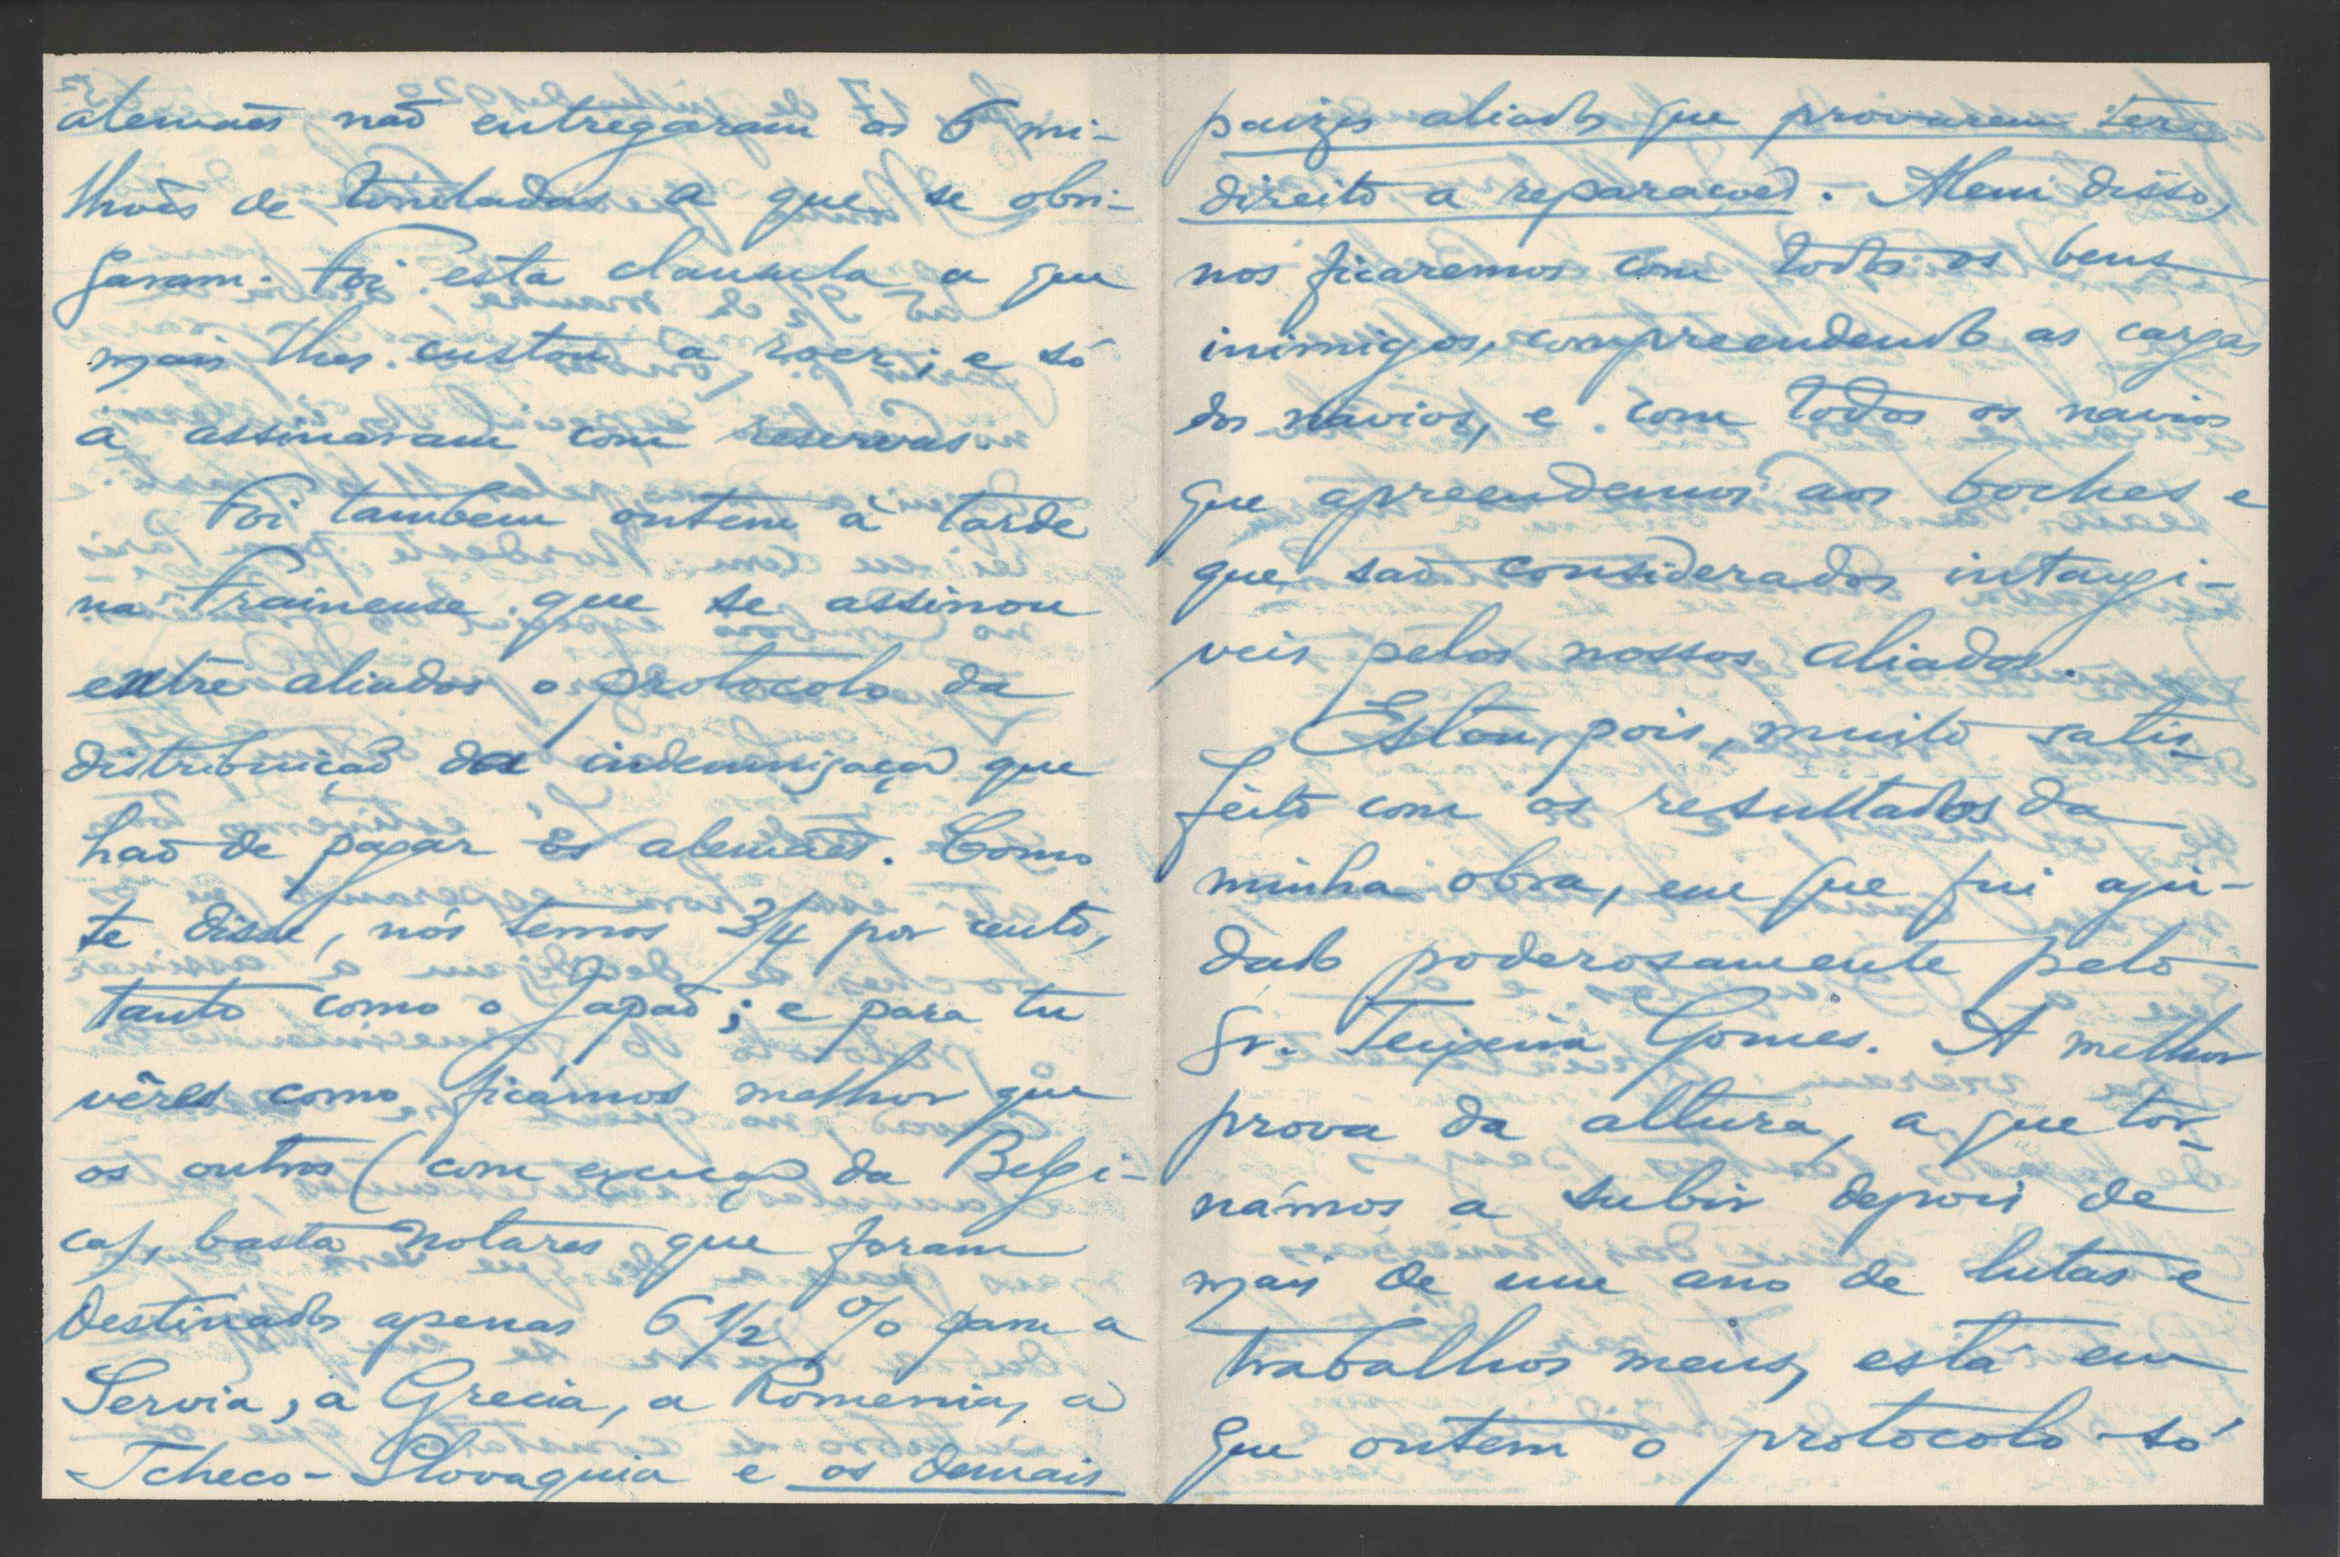 alemães não entregaram os 6 mi-
lhões de toneladas a que se obri-
garam. Foi esta clausula a que
mais lhes custou a roer; e só
a assinaram com reservas.
Foi tambem ontem á tarde
na Fraineuse que se assinou
entre aliados o protocolo da
distribuição da indemnisação que
hão de pagar os alemães. Como
te disse, nós temos 3/4 por cento,
tanto como o Japão; e para tu
vêres como ficámos melhor que
os outros (com exceção da Belgi-
ca), basta notares que foram
destinados apenas 6 1/2 % para a
Servia, a Grecia, a Romenia, a
Tcheco-Slovaquia e os demais
paizes aliados que provarem ter
direito a reparações. Alem disso,
nós ficaremos com todos os bens
inimigos, compreendendo as cargas
dos navios, e com todos os navios
que apreendemos aos boches e
que são considerados intangi-
veis pelos nossos aliados.
Estou, pois, muito satis-
feito com os resultados da
minha obra, em que fui aju-
dado poderosamente pelo
Sr. Teixeira Gomes. A melhor
prova da altura, a que tor-
námos a subir depois de
mais de um ano de lutas e
trabalhos meus, está em
que ontem o protocolo só